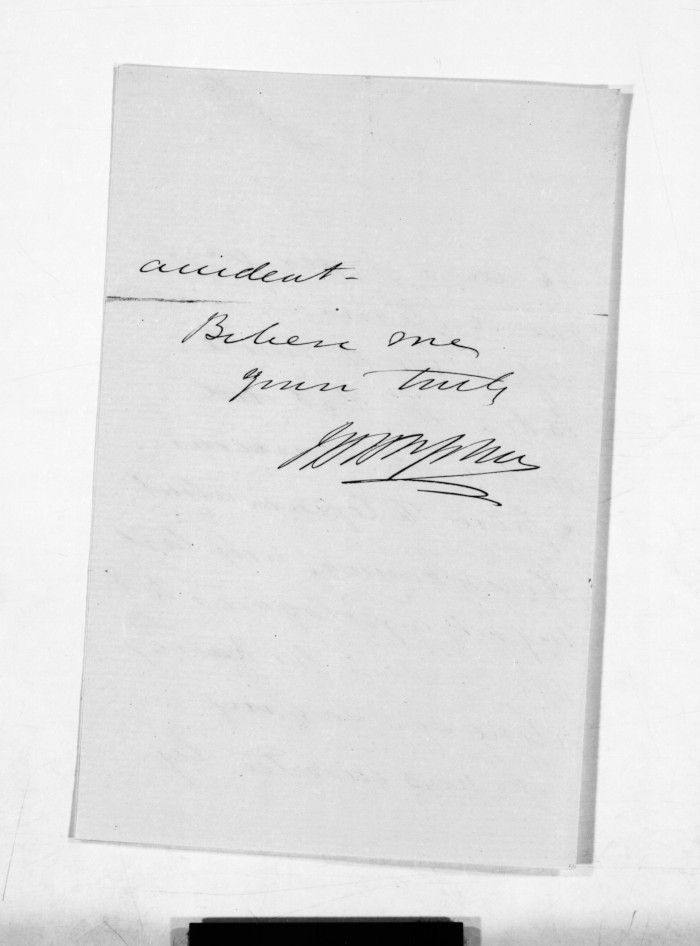 accident -
Believe me
yours truly